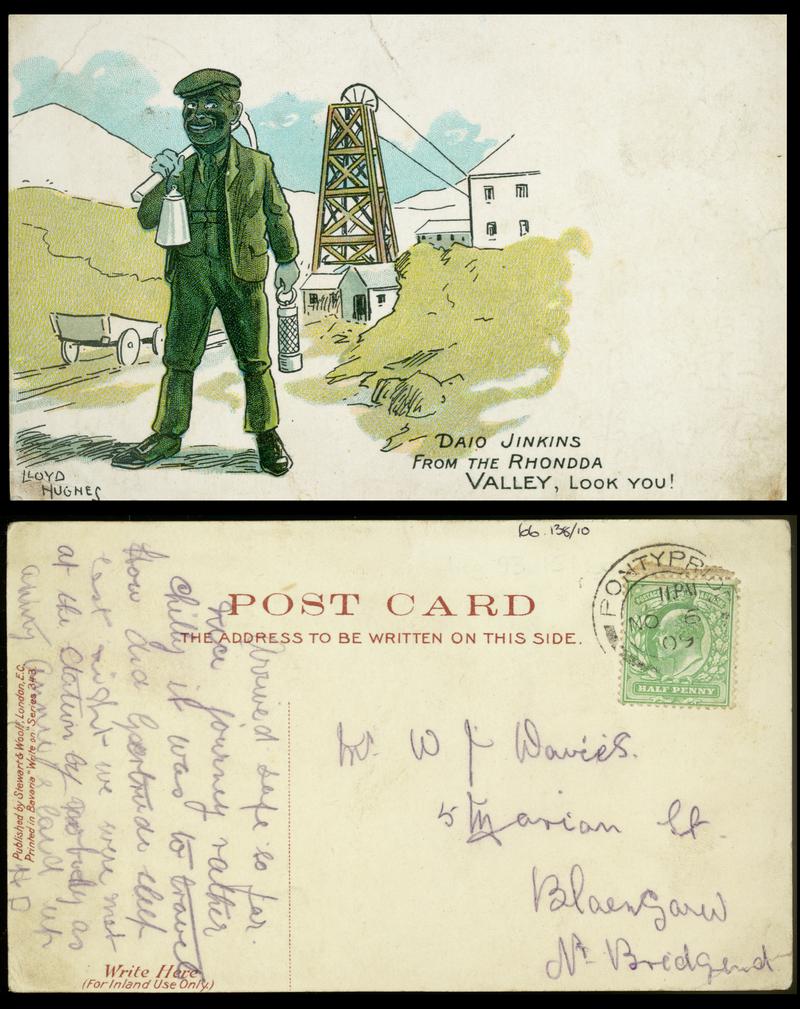 DAIO JINKINS
FROM THE RHONDDA
VALLEY, LOOK YOU!
LLOYD
HUGHES
66.138/10
POST CARD
THE ADDRESS TO BE WRITTEN ON THIS SIDE.
PONTYPR
11 PM
NO 6
09
POSTAGE
HALF PENNY
Mr W J Davies.
5 Marian St.
Blaengarw
Nr Bridgend
Arrived safe so far.
journey rather
chilly it was to travel
How did Gertrude sleep
last night we were met
at the station by nobody as
Annie laid up
H D
Published by Stewart & Woolf, London, E.C.
Printed in Bavaria "Write on" Series 343
Write Here
(For Inland Use Only.)